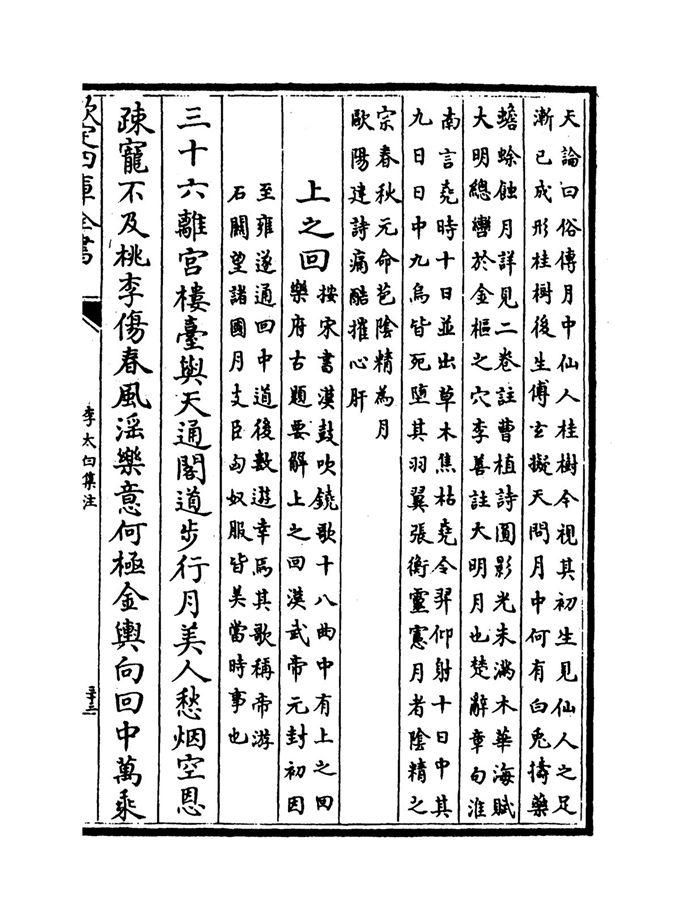 天論曰俗傳月中仙人桂樹今視其初生見仙人之足
漸已成形桂樹後生傅玄擬天問月中何有白兎擣藥
蟾蜍蝕月詳見二卷註曹植詩圓影光未滿木華海賦
大明㧾轡於金樞之穴李善註大明月也楚辭章句淮
南言堯時十日並出草木焦枯堯令羿仰射十日中其
九日日中九烏皆死堕其羽翼張衡靈憲月者陰精之
宗春秋元命苞陰精為月
歐陽建詩痛酷摧心肝
上之回
按宋書漢鼓吹鐃歌十八曲中有上之回
樂府古題要解上之回漢武帝元封初因
至雍遂通回中道後數遊幸焉其歌稱帝游
石關望諸國月支臣匈奴服皆美當時事也
三十六離宮樓臺與天通閣道步行月美人愁烟空恩
疎寵不及桃李傷春風滛樂意何極金輿向回中萬乗
欽定四庫全書
李太白集注